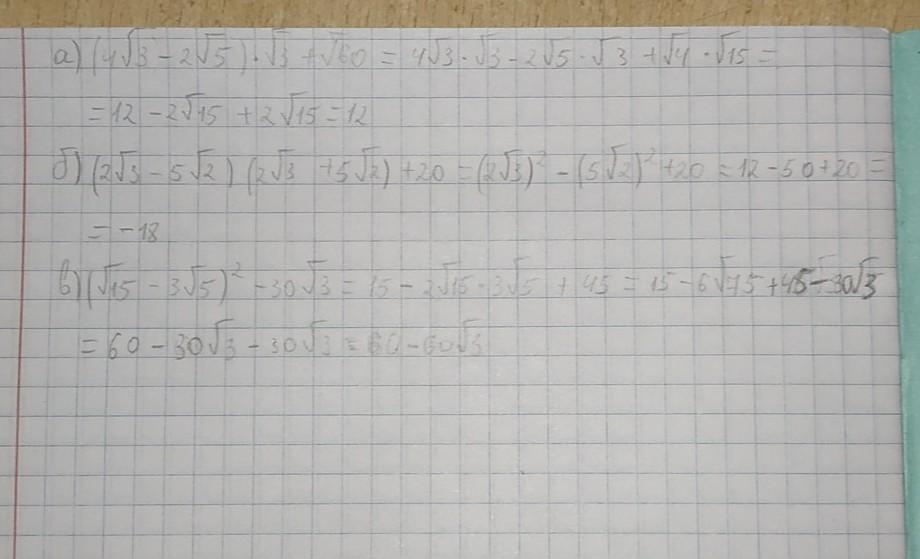 а) (4√3 - 2√5)·√3 + √60 = 4√3·√3 - 2√5·√3 + √4·√15 =
= 12 - 2√15 + 2√15 = 12
б) (2√3 - 5√2)(2√3 + 5√2) + 20 = (2√3)² - (5√2)² + 20 = 12 - 50 + 20 =
= -18
в) (√15 - 3√5)² - 30√3 = 15 - 2√15·3√5 + 45 = 15 - 6√75 + 45 - 30√3
= 60 - 30√3 - 30√3 = 60 - 60√3